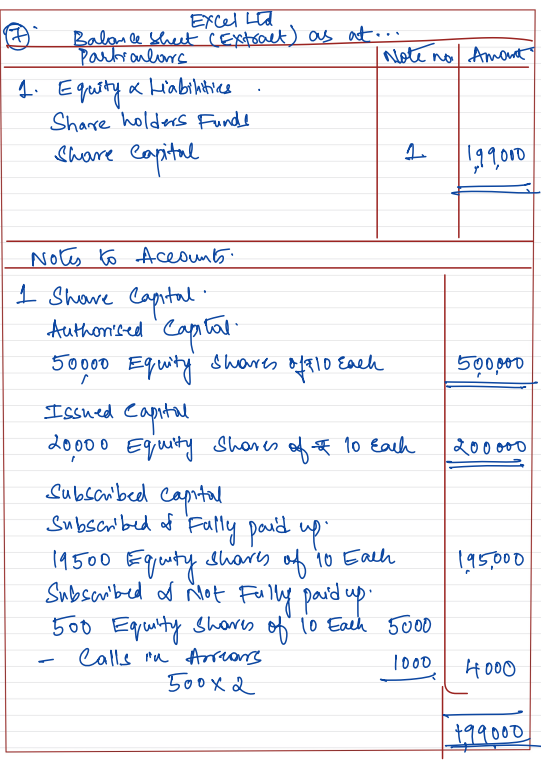 Excel Ltd
7. Balance sheet (Extract) as at...
Particulars Note no Amount
1. Equity & Liabilities.
Share holders Funds
Share Capital 1 1,99,000
Notes to Accounts.
1 Share Capital.
Authorised Capital.
50,000 Equity Shares of ₹10 Each 5,00,000
Issued Capital
20,000 Equity Shares of ₹ 10 Each 2,00,000
Subscribed Capital
Subscribed & Fully paid up.
19500 Equity Shares of 10 Each 1,95,000
Subscribed & Not Fully paid up.
500 Equity Shares of 10 Each 5000
- Calls in Arrears 1000 4000
500 x 2
199000